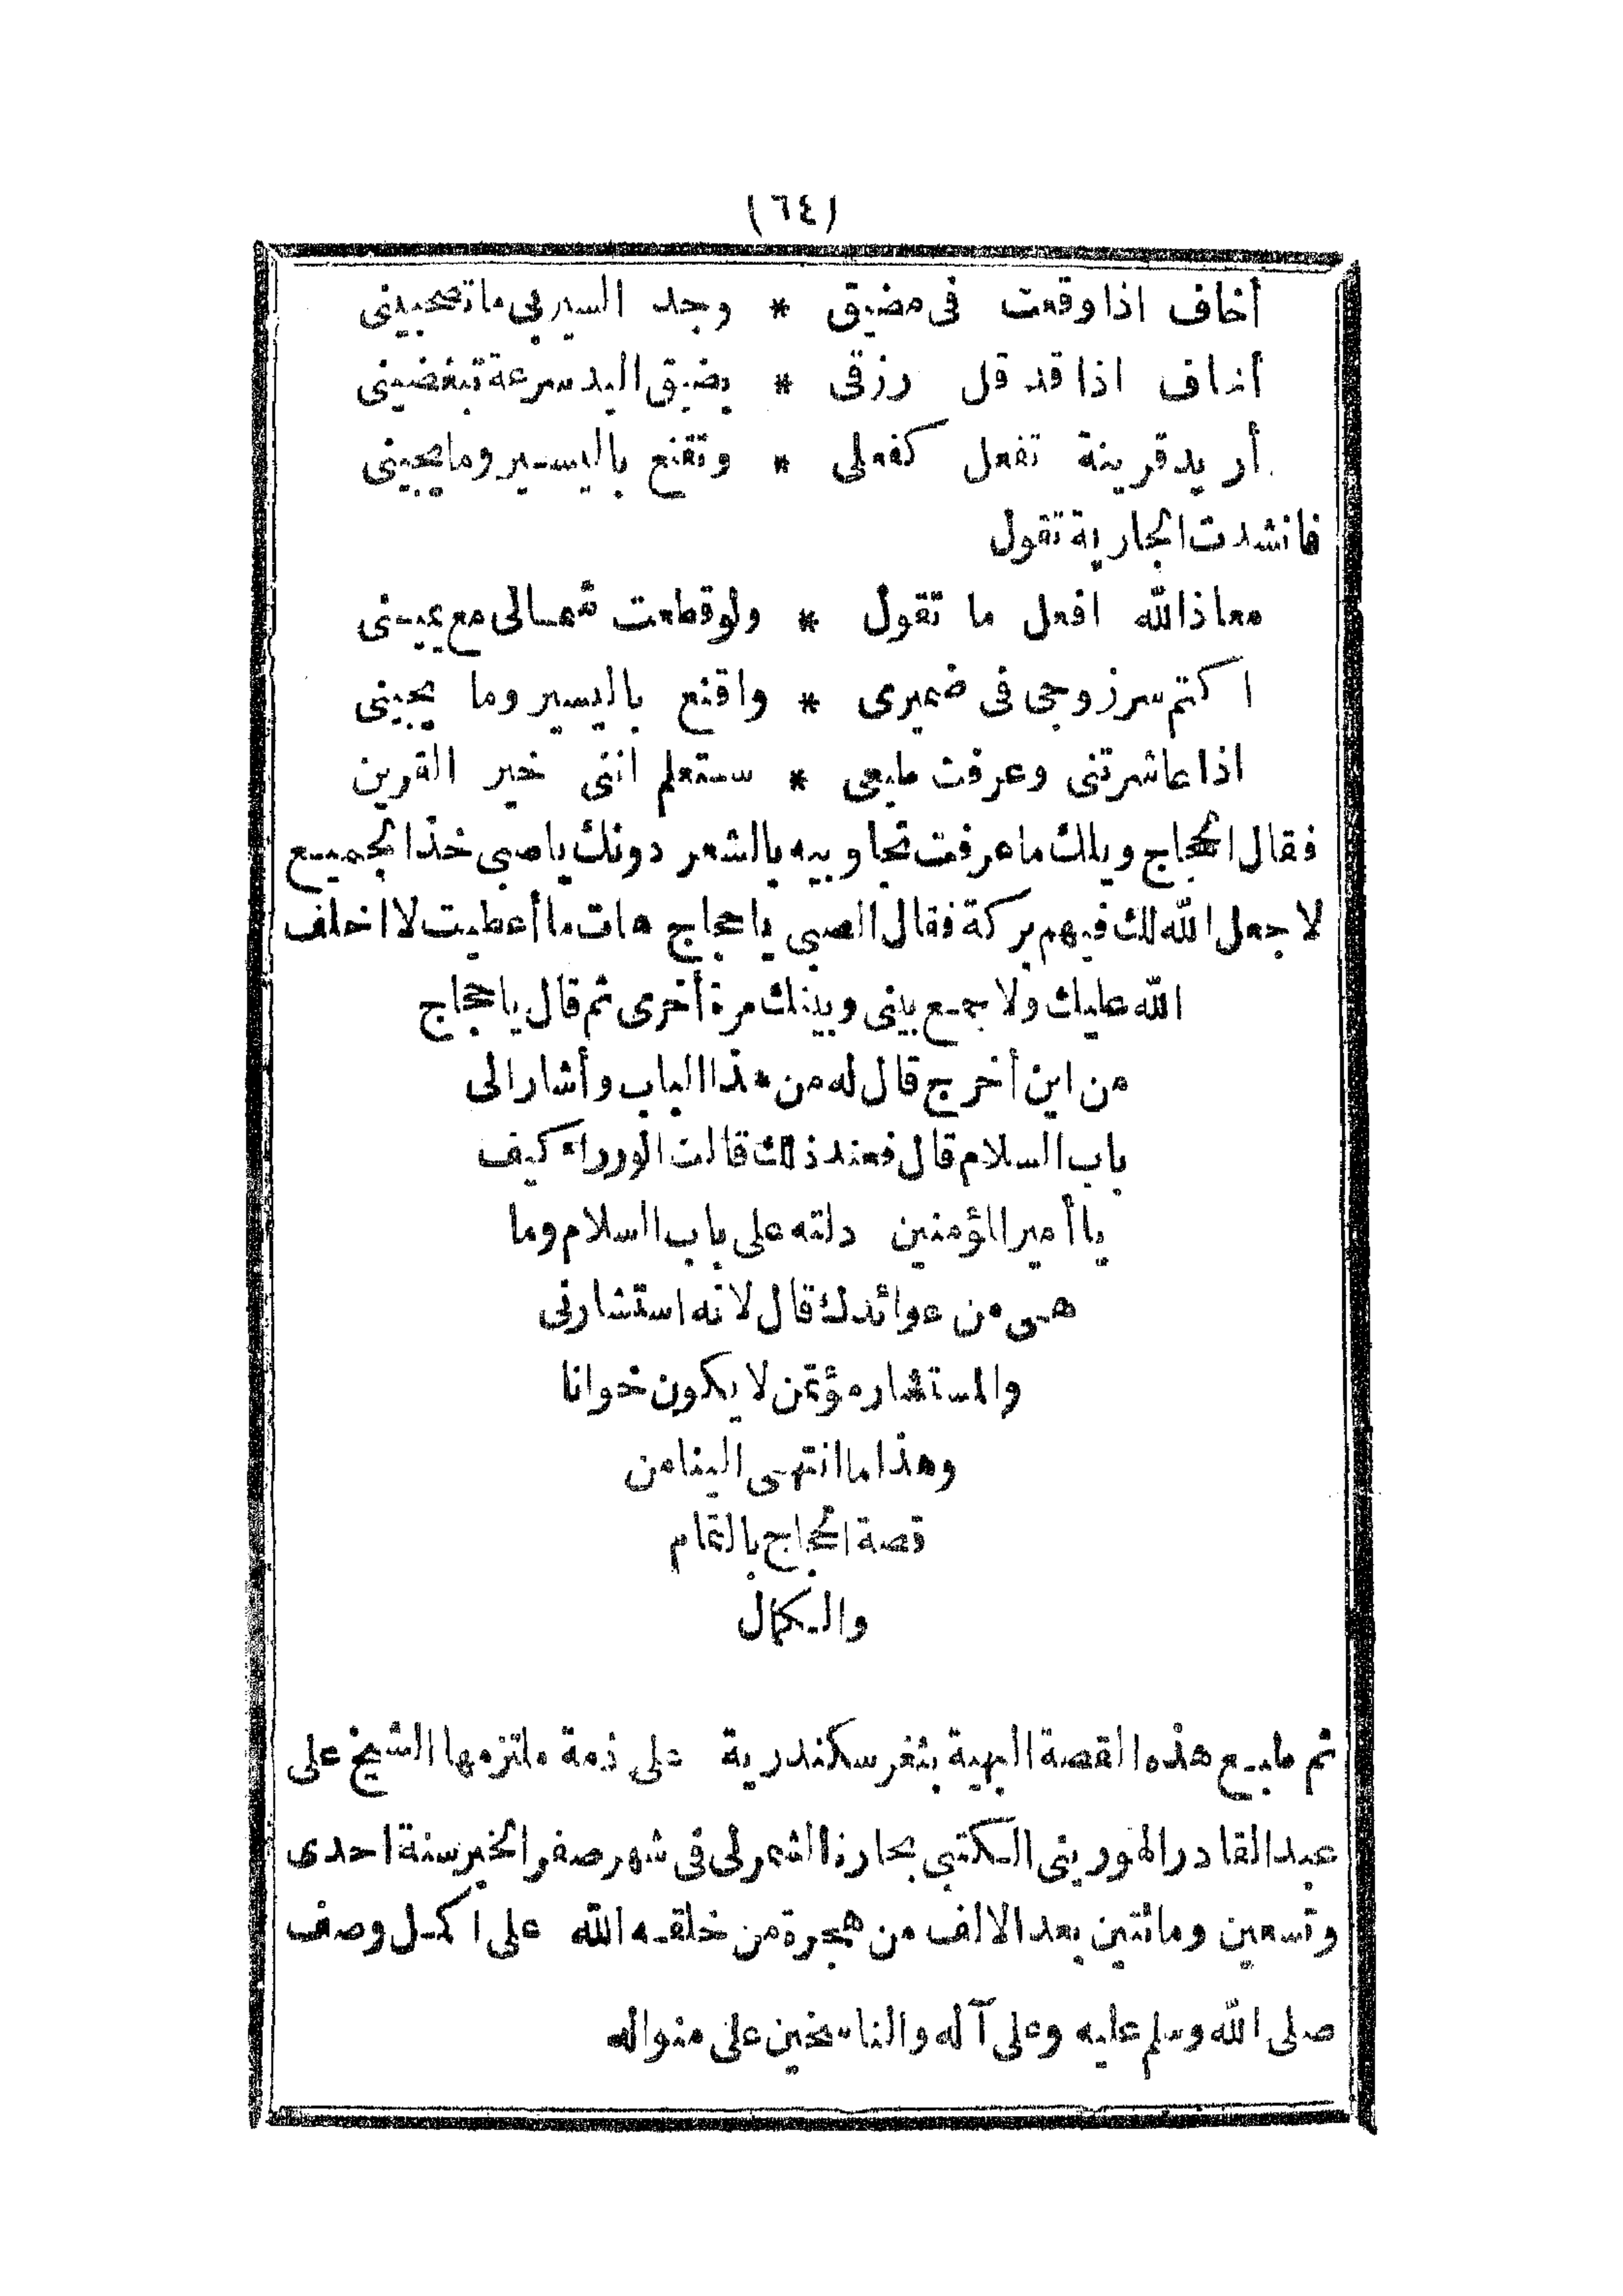 (٦٤)
أخاف اذا وقعت فى مضيق * وجد السير بى ما تصحبينى
أخاف اذا قد قل رزقى * بضيق اليد سرعة تبغضينى
أريد قرينة تفعل كفعلى * وتقنع باليسير وما يجينى
فانشدت الجارية تقول
معاذ الله افعل ما تقول * ولو قطعت شمالى مع يمينى
اكتم سر زوجى فى ضميرى * واقنع باليسير وما يجينى
اذا عاشرتنى وعرفت طبعى * ستعلم اننى خير القرين
فقال الحجاج ويلك ما عرفت تجاوبيه بالشعر دونك يا صبى خذ الجميع
لا جعل الله لك فيهم بركة فقال الصبى يا حجاج هات ما أعطيت لا اخلف
الله عليك ولا جمع بينى وبينك مرة أخرى ثم قال يا حجاج
من اين أخرج قال له من هذا الباب وأشار الى
باب السلام قال فعند ذلك قالت الوزراء كيف
يا أمير المؤمنين دلته على باب السلام وما
هى من عوائدك قال لانه استشارنى
والمستشار مؤتمن لا يكون خوانا
وهذا ما انتهى الينا من
قصة الحجاج بالتمام
والكمال
تم طبع هذه القصة البهية بثغر سكندرية على ذمة ملتزمها الشيخ على
عبد القادر الهورينى الكتبي بحارة الشمرلى فى شهر صفر الخير سنة احدى
وتسعين ومائتين بعد الالف من هجرة من خلقه الله على اكمل وصف
صلى الله وسلم عليه وعلى آله والناسخين على منواله